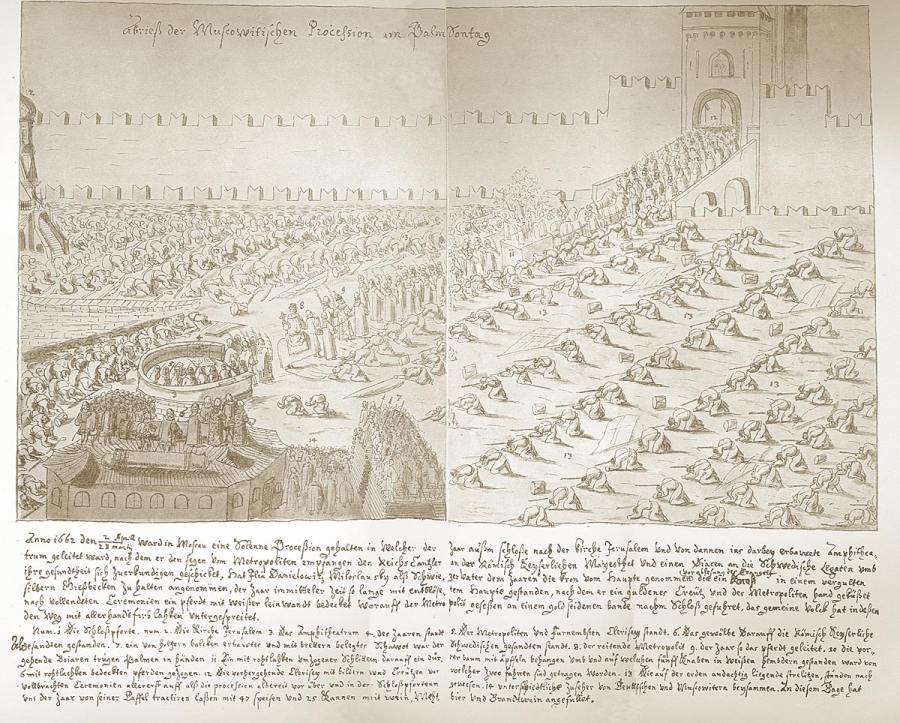 Abriß der Muscowitischen Procession am Palm Sontag
Anno 1662 den 2 April / 23 Martij ward in Moscau eine Solenne Procession gehalten in Welcher der
Zaar außm schloße nach der Kirche Jerusalem Und von dannen ins darbey erbawete Amphithea,
trum geleitet ward, nach dem er den segen vom Metropoliten empfangen den Reichs Cantzler
an der Römisch Keyserlichen Mayesthet Und einen in an die Schwedische Legaten umb
ihre gesundtheit sich zuerkundigen geschicket, Hat Ilia Danielowitz Miloslausky als Schwie,
ger Vater dem Zaaren die Cron vom Haupte genommen die ein in einem vergulten
silbern zu halten angenommen, der Zaar inmittelst Zeit so lange mit entblöß,
tem Haupte gestanden, nach dem er ein guldenes Creutz Und des Metropoliten hand geküßet
nach vollendeten Ceremonien ein pferdt mit weißer leinwandt bedecket Worauff der Metro
polit geseßen an einem gold seidenen bande nachm Schloß geführet, das gemeine Volck hat indeßen
den Weg mit allerhandt lahken untergespreitet.
Num. 1 die Schloßpforte. num 2. die Kirche Jerusalem 3. das Amphitheatrum 4. der Zaaren standt
5. der Metropoliten Und fürnembsten Clerisey standt. 6. das gewölbe darauff die Römisch Keyserliche
gesandten gestanden. 7. ein von höltzern balcken erbaweter Und mit brettern belegter Schawort war der
Schwedischen gesandten standt. 8. der reitende Metropolit 9. der Zaar so das pferdt geleitet. 10 die vor,
gehende Boiaren trugen Palmen in händen 11 Ein mit rohtlahken umbzogener Schlitten darauff ein dür,
rer baum mit äpfelen behangen Und auf welchen fünff knaben in Weißen hembdern gesanden ward von
6 mit rohtlachen bedeckten pferden gezogen. 12 die vorhergehende Clerisey mit bildern und Creutzen vor
welcher zwo fahnen sind getragen worden. 13 die auf der erden andächtig liegende streltzen, stunden nach
vollbrachten Ceremonien allererst auff als die procession allerseit vor über Und in der Schloßpforten
gewesen. 14 unterschiedtliche Zuseher von Teutschen Und Muscowitern beysammen. An diesem Tage hat
uns der Zaar von seiner Taffel tractiren laßen mit 47 speisen Und 25 Kannen mit wein, Meht,
bier Und Brandtwein angefüllet.